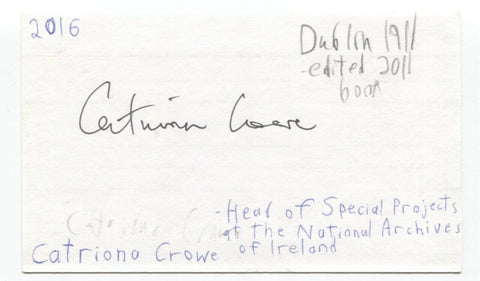 2016
Dublin 1911
-edited 2011
book
Catriona Crowe
-Head of Special Projects
at the National Archives
of Ireland
Catriona Crowe